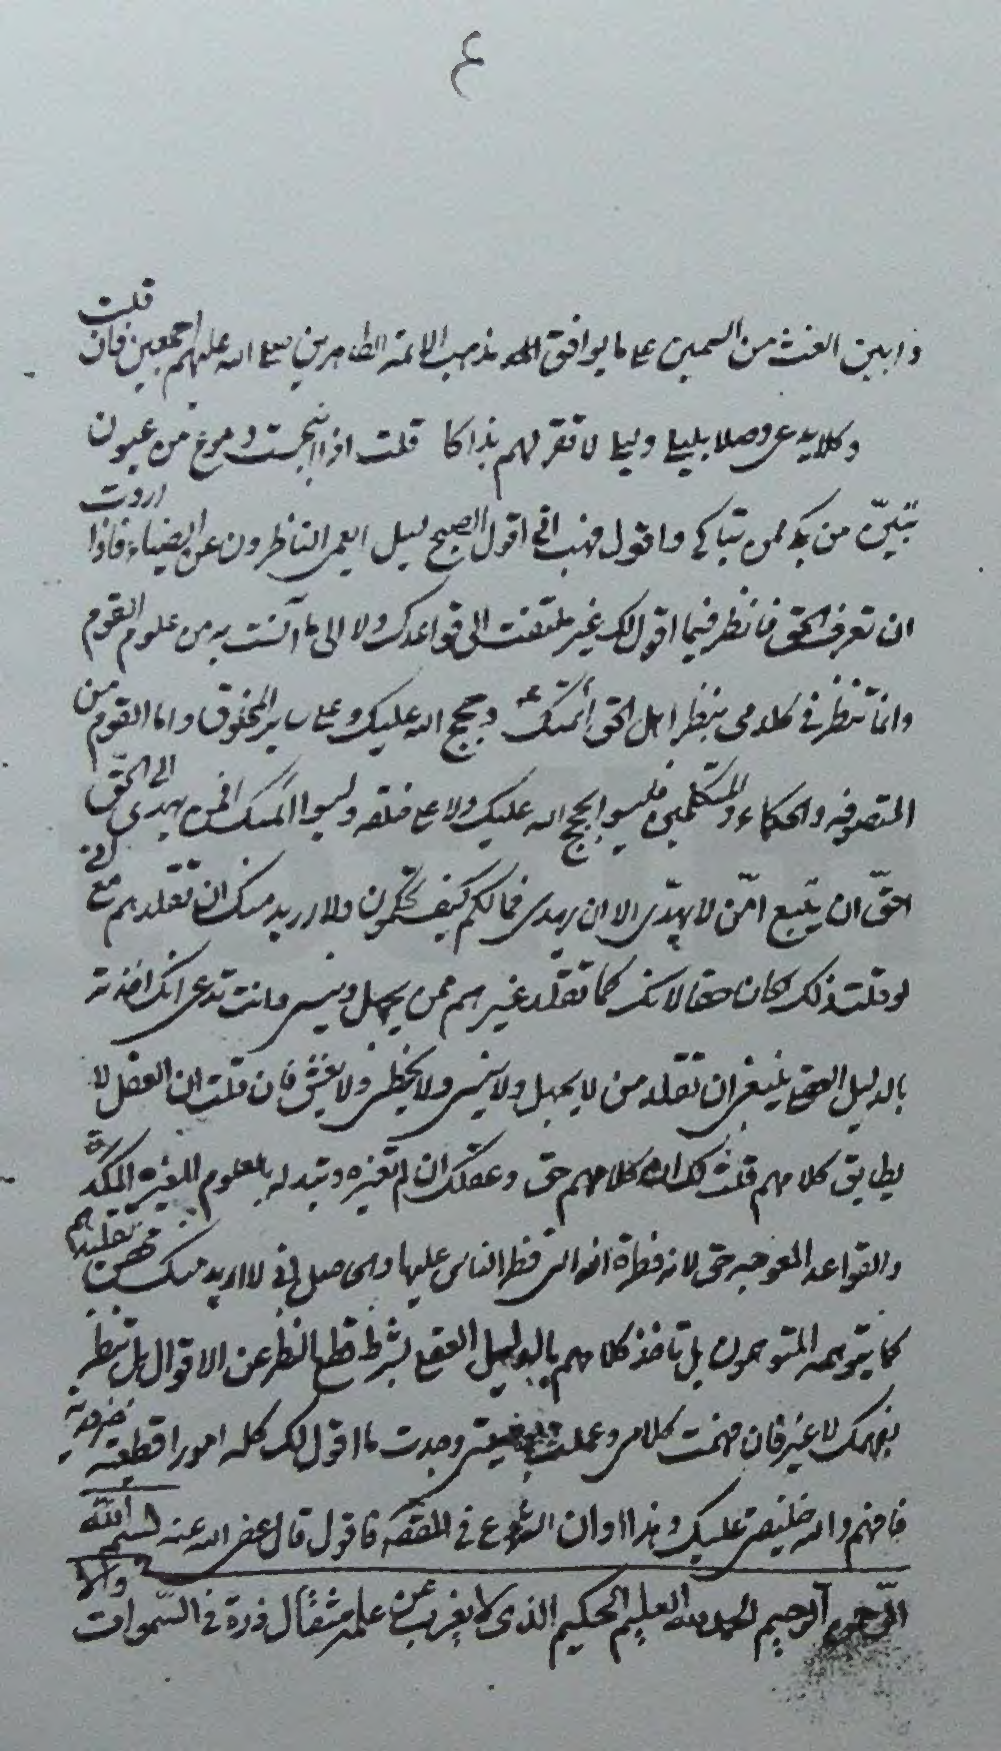 ٤
وابين الغث من السمين على ما يوافق مذهب الائمة الطاهرين صلى الله عليهم اجمعين فان قلت
وكلا يدعى وصلا بليلى وليلى لا تقر لهم بذاكا قلت اذا انبجست دموع من عيون
تبين من بكى ممن تباكى واقول فهب اني اقول الصبح ليل ايعمى الناظرون عن الضياء فاذا اردت
ان تعرف الحق فانظر فيما اقول لك غير ملتفت الى قواعدك ولا الى ما آنست به من علوم القوم
وانما تنظر في كلامى بنظر اهل الحق أئمتك ع وحجج الله عليك وعلى ساير المخلوق واما القوم من
المتصوفه والحكماء والمتكلمين فليسوا بحجج الله عليك ولا على خلقه وليسوا ائمتك افمن يهدى الى الحق
احق ان يتبع امّن لا يهدّى الا ان يهدى فمالكم كيف تحكمون ولا اريد منك ان تقلدهم مع انى
لو قلت ذلك لكان حقا لانك كما تقلد غيرهم ممن يجهل وينسى وانت تدعى انك اخذته
بالدليل العقلى ينبغى ان تقلد من لا يجهل ولا ينسى ولا يخطى ولا يغش فان قلت ان العقل لا
يطابق كلامهم قلت لك ان كلامهم حق وعقلك ان لم تغيره وتبدله بالعلوم المغيرة المكدرة
والقواعد المعوجه حق لانه فطرة الله التى فطر الناس عليها والحاصل انى لا اريد منك محض تقليدهم
كما يتوهمه المتوهمون بل تاخذ كلامهم بالدليل العقلى بشرط قطع النظر عن الاقوال بل تنظر
بفهمك لا غير فان فهمت كلامى وعملت بوصيتى وجدت ما اقول لك كله امورا قطعية ضرورية
فافهم والله خليفتى عليك وهذا اوان الشروع في المقصد فاقول قال عفى الله عنه بسم الله
الرّحمن الرحيم الحمد لله العليم الحكيم الذى لا يعزب عن علمه مثقال ذرة فى السموات والارض